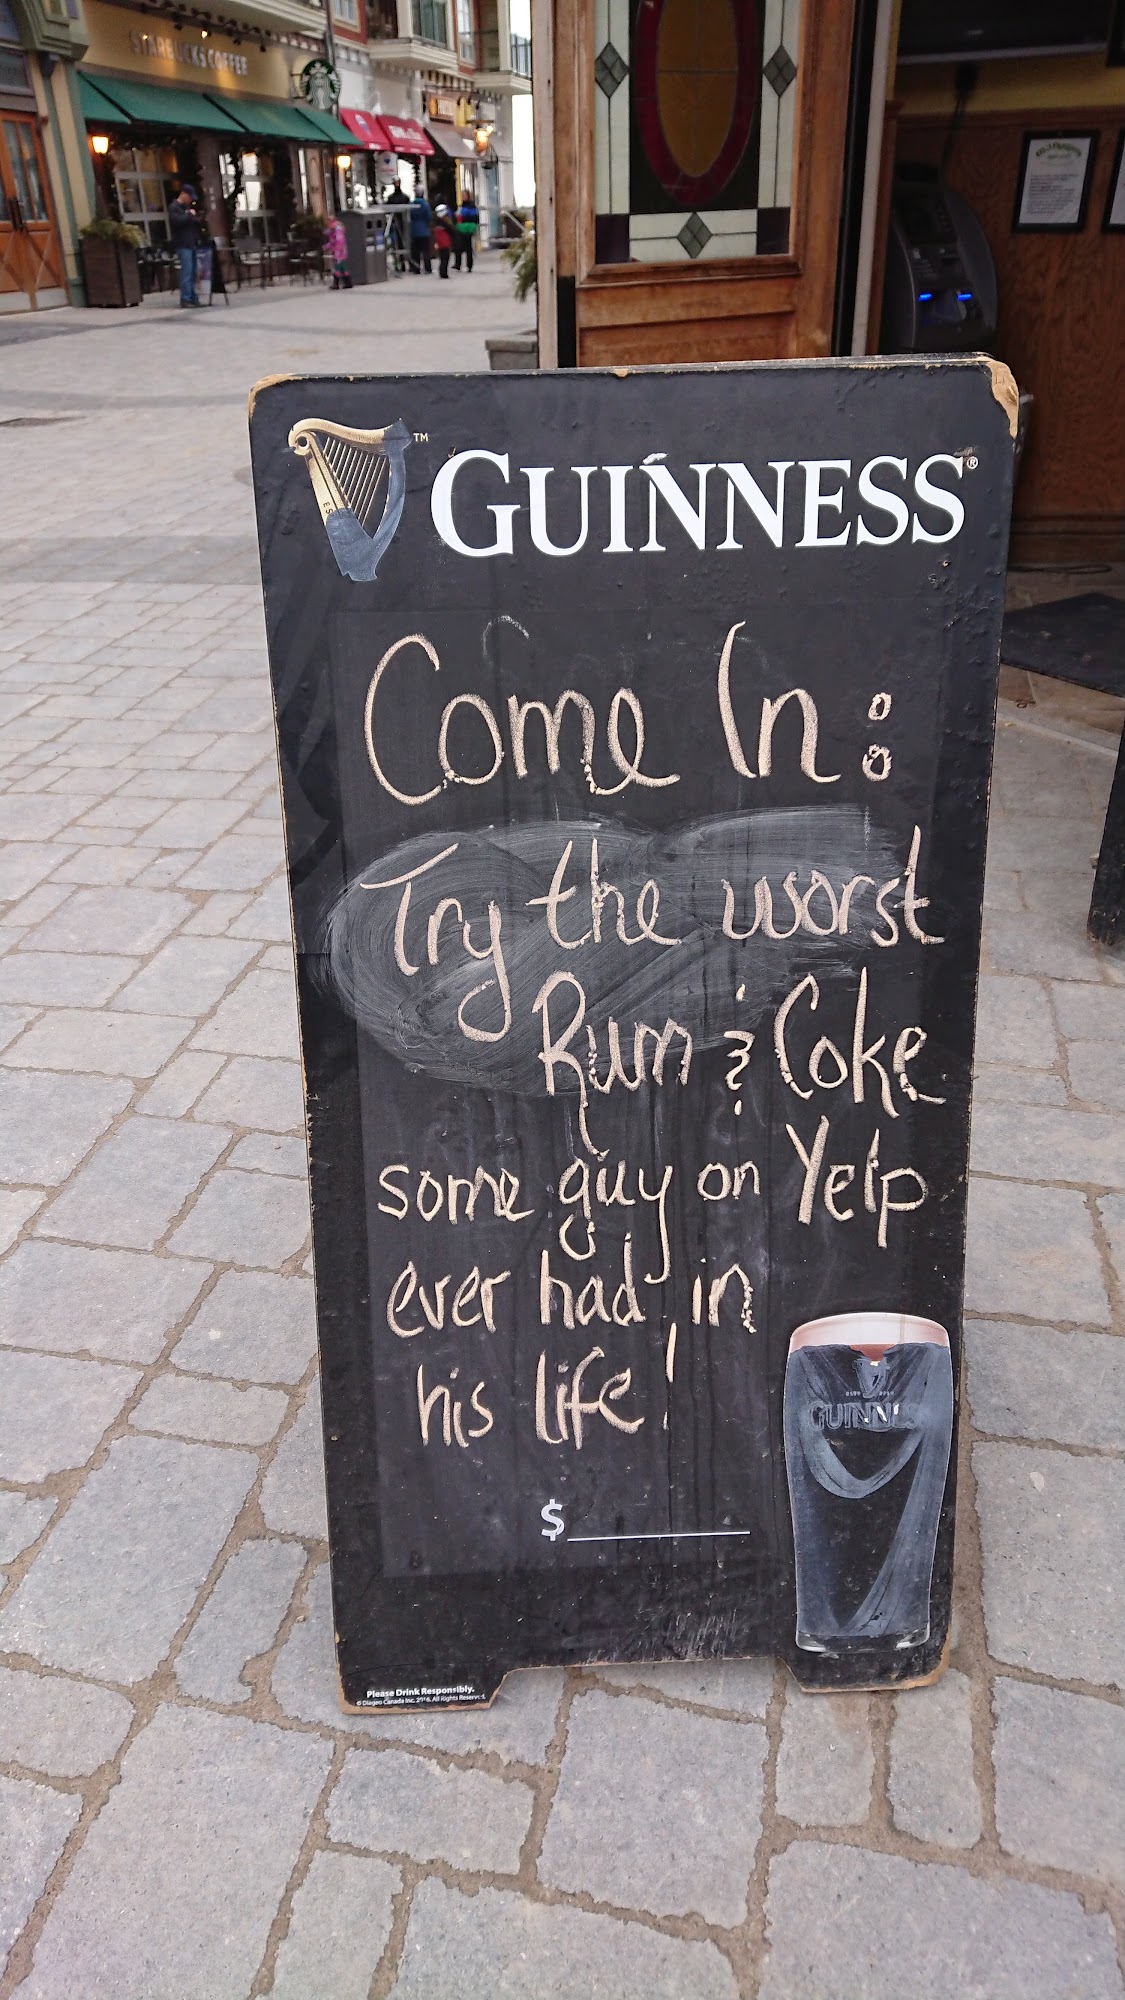 STARBUCKS COFFEE
GUINNESS®
™
Come In:
Try the worst
Rum & Coke
some guy on Yelp
ever had in
his life!
$
GUINNESS
Please Drink Responsibly.
© Diageo Canada Inc. 2016. All Rights Reserved.